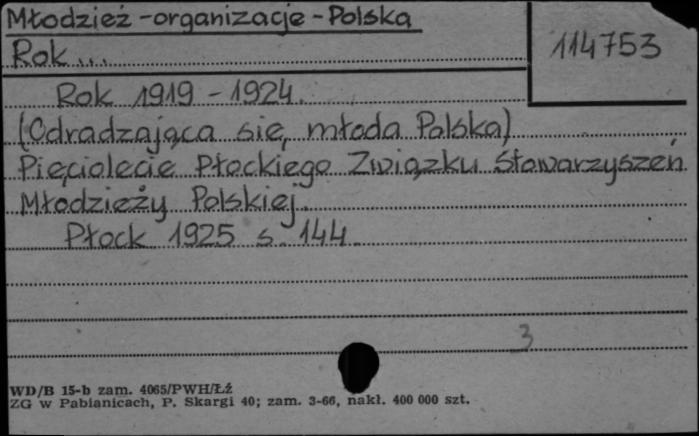 Młodzież - organizacje - Polska
114753
Rok...
Rok 1919 - 1924.
(Odradzająca się młoda Polska)
Pięciolecie Płockiego Związku Stowarzyszeń
Młodzieży Polskiej.
Płock 1925 s. 144.
3
WD/B 15-b zam. 4065/PWH/ŁŹ
ZG w Pabianicach, P. Skargi 40; zam. 3-66, nakł. 400 000 szt.